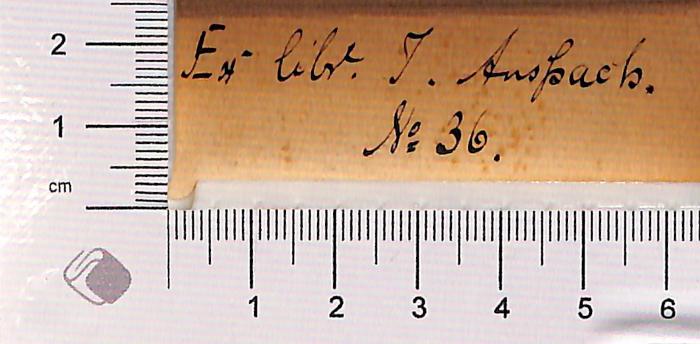 Ex libr. J. Anspach.
№ 36.
2
1
cm
1 2 3 4 5 6